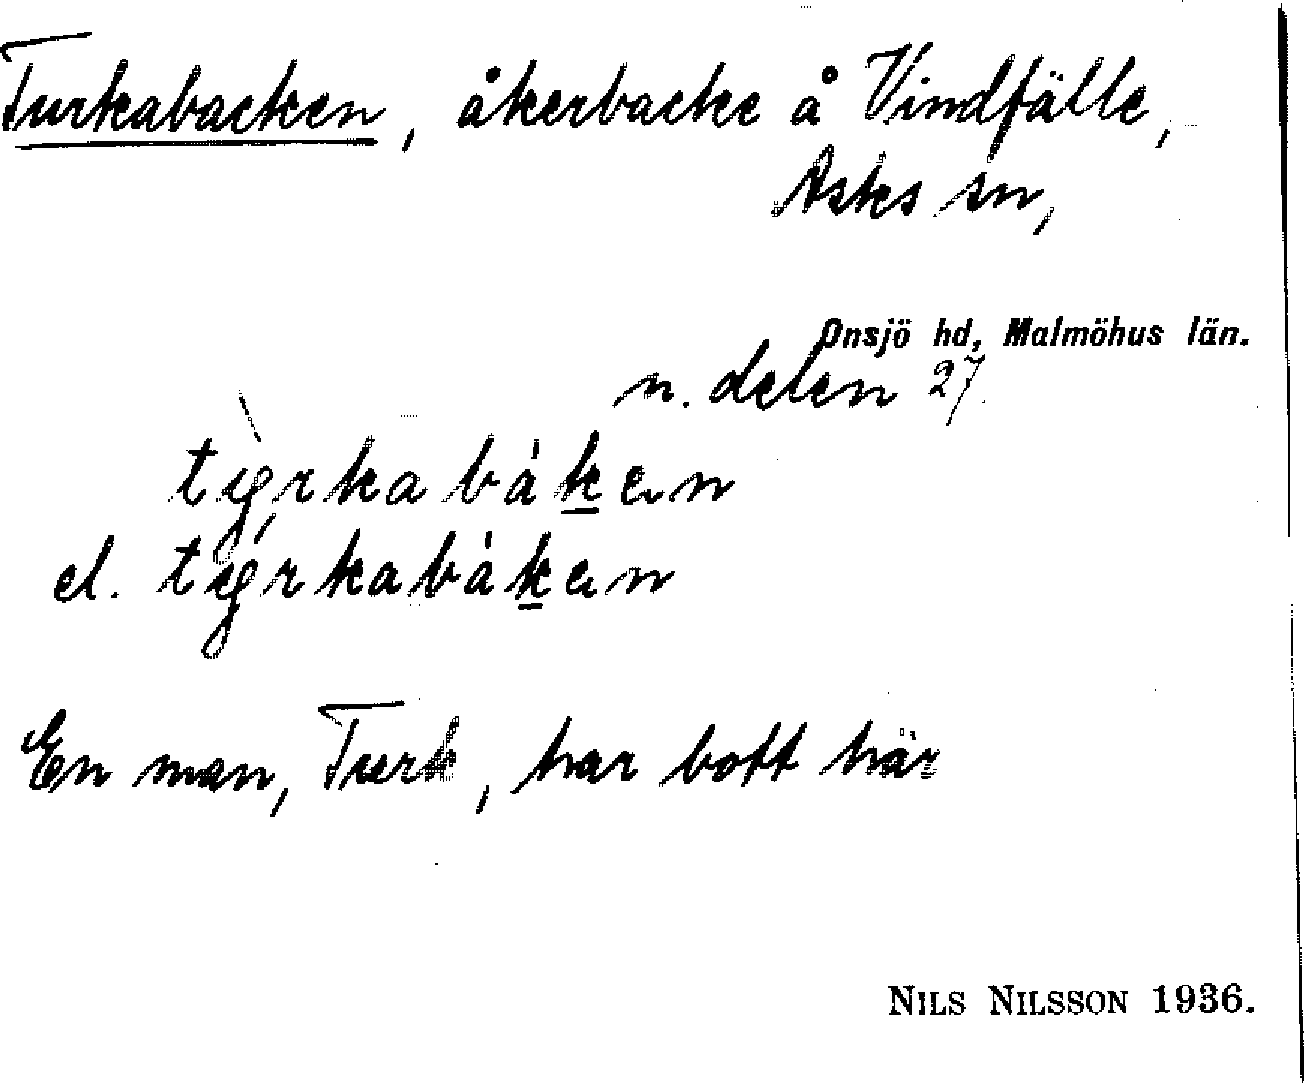 Turkabacken, åkerbacke å Vindfälle,
Asks sn,
Onsjö hd, Malmöhus län.
n. delen 27
el.
En man, Turk, har bott här
NILS NILSSON 1936.